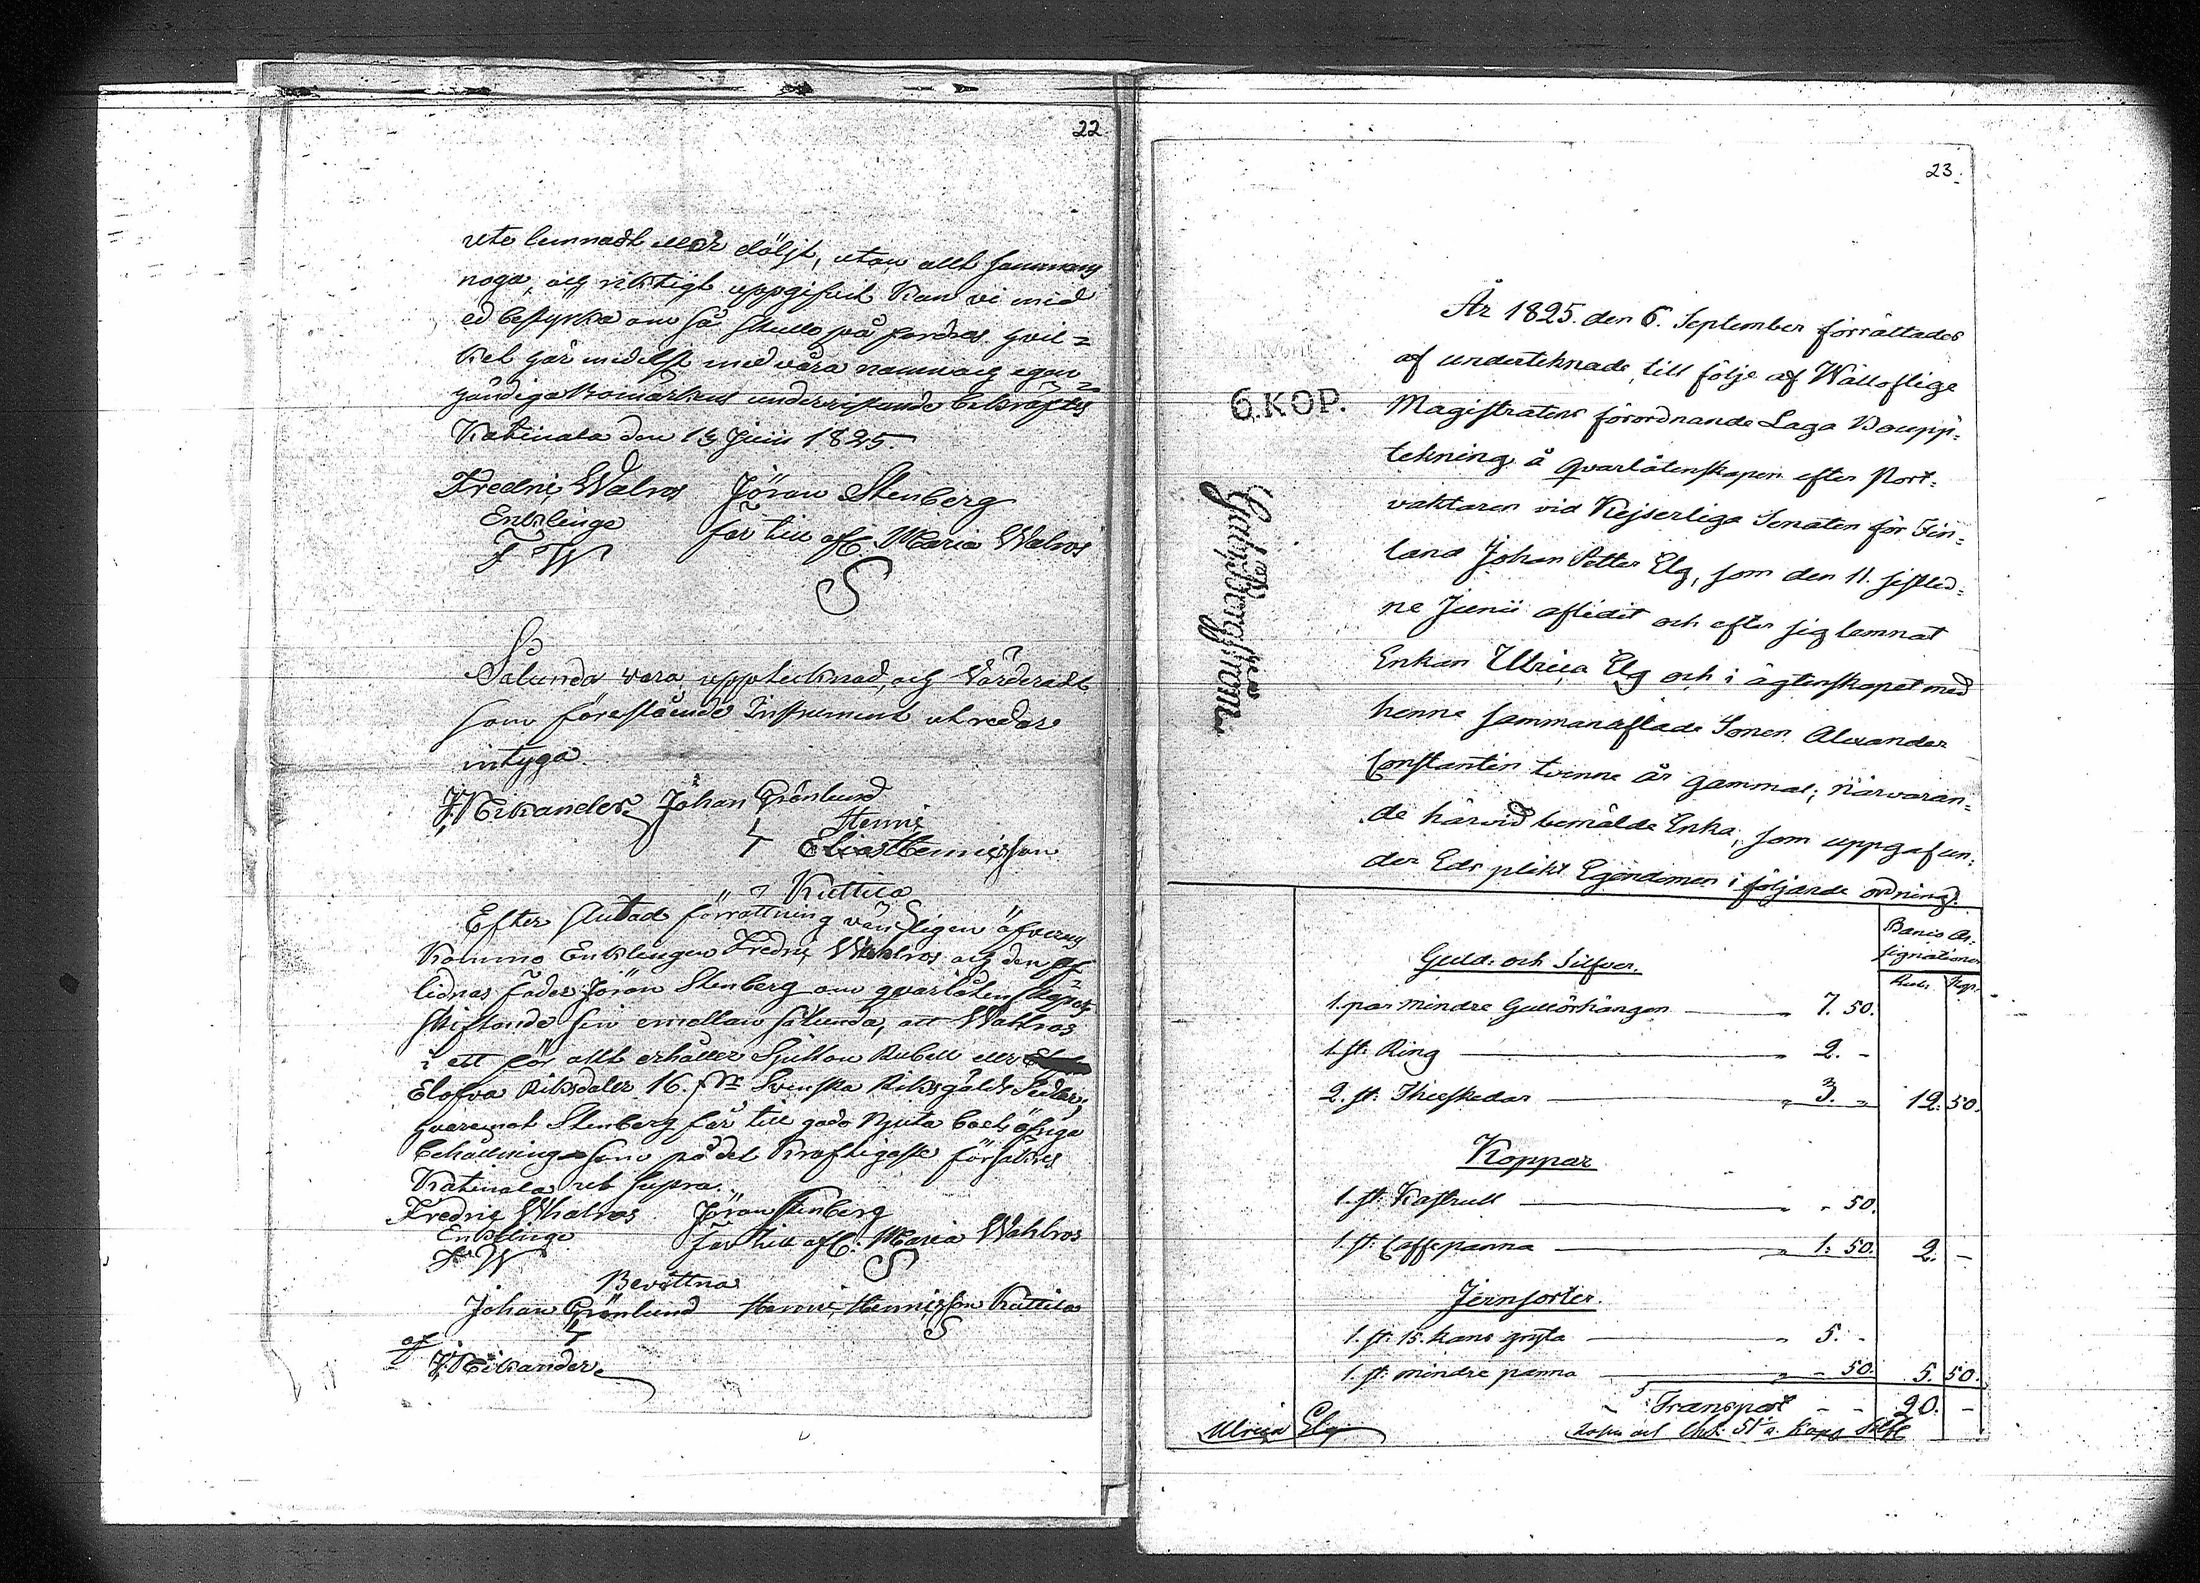 22
ute lemnadt eller döljt, utan allt sammans
noga, och riktigt uppgifvit kan vi med
ed bestyrka om så skulle på fordras hvil=
ket här medelst med våra namn och egen
händiga bomärkens underrittande bekräftes
Katinala den 13 Junii 1825.
Fredric Walros Jöran Stenberg
Enklinge far till afl. Maria Walros
F W S
Sålunda vara upptecknad, och Värderadt
som föreslående Instrument utredar
intyga
J. Nikander Johan Grönlund
Henric
Elias Hennicsson
Kuttila
Efter slutad förrättning vänligen öfverens
kommo Enklingen Fredric Wahlros och den af
lidnas fader Jöran Stenberg om qvarlåtenskapens
skiftande sin emellan sålunda, att Wahlros
i ett för allt erhåller Sjutton Rubell eller
Elofva Riksdaler 16. Svenska Riksgälds Sedlar;
hvaremot Stenberg får till godo njuta boets öfriga
behållning som på det kraftigaste försäkras
Katinala ut supra.
Fredric Whalros Jöran Stenberg
Enklinge far till afl: Maria Wahlros
F W S
Bevittna
Johan Grönlund Henric Hennicsson Kuttila
S
af
J. Nikander
23.
År 1825. den 6. September förrättades
af undertecknade, till följe af Wälloflige
6.KOP. Magistratens förordnande Laga Bouppt=
tekning å qvarlåtenskapen efter Port=
vaktaren vid Kejserliga Senaten för Fin=
land Johan Petter Elg, som den 11. sistled=
ne Junii aflidit och efter sig lemnat
Enkan Ulrica Elg och i ägtenskapet med
henne sammanaflade Sonen Alexander
Constantin tvenne år gammal; närvaran=
de härvid bemälde Enka, som uppgaf un=
der Eds plikt Egendomen i följande ordning.
Banco As=
signationer
Guld: och Silfver.
Rub. Kop.
1. par mindre Gullörhängen 7. 50.
1. st: Ring 2. -
2. st: Theeskedar 3. 12. 50.
Koppar
1. st: Kastrull 50.
1. st: Caffepanna 1: 50. 2. -
Jernsorter.
1. st: 15. kans gryta 5. -
1. st: mindre panna 50. 5. 50.
Transport - - 20. -
Ulrica Elg